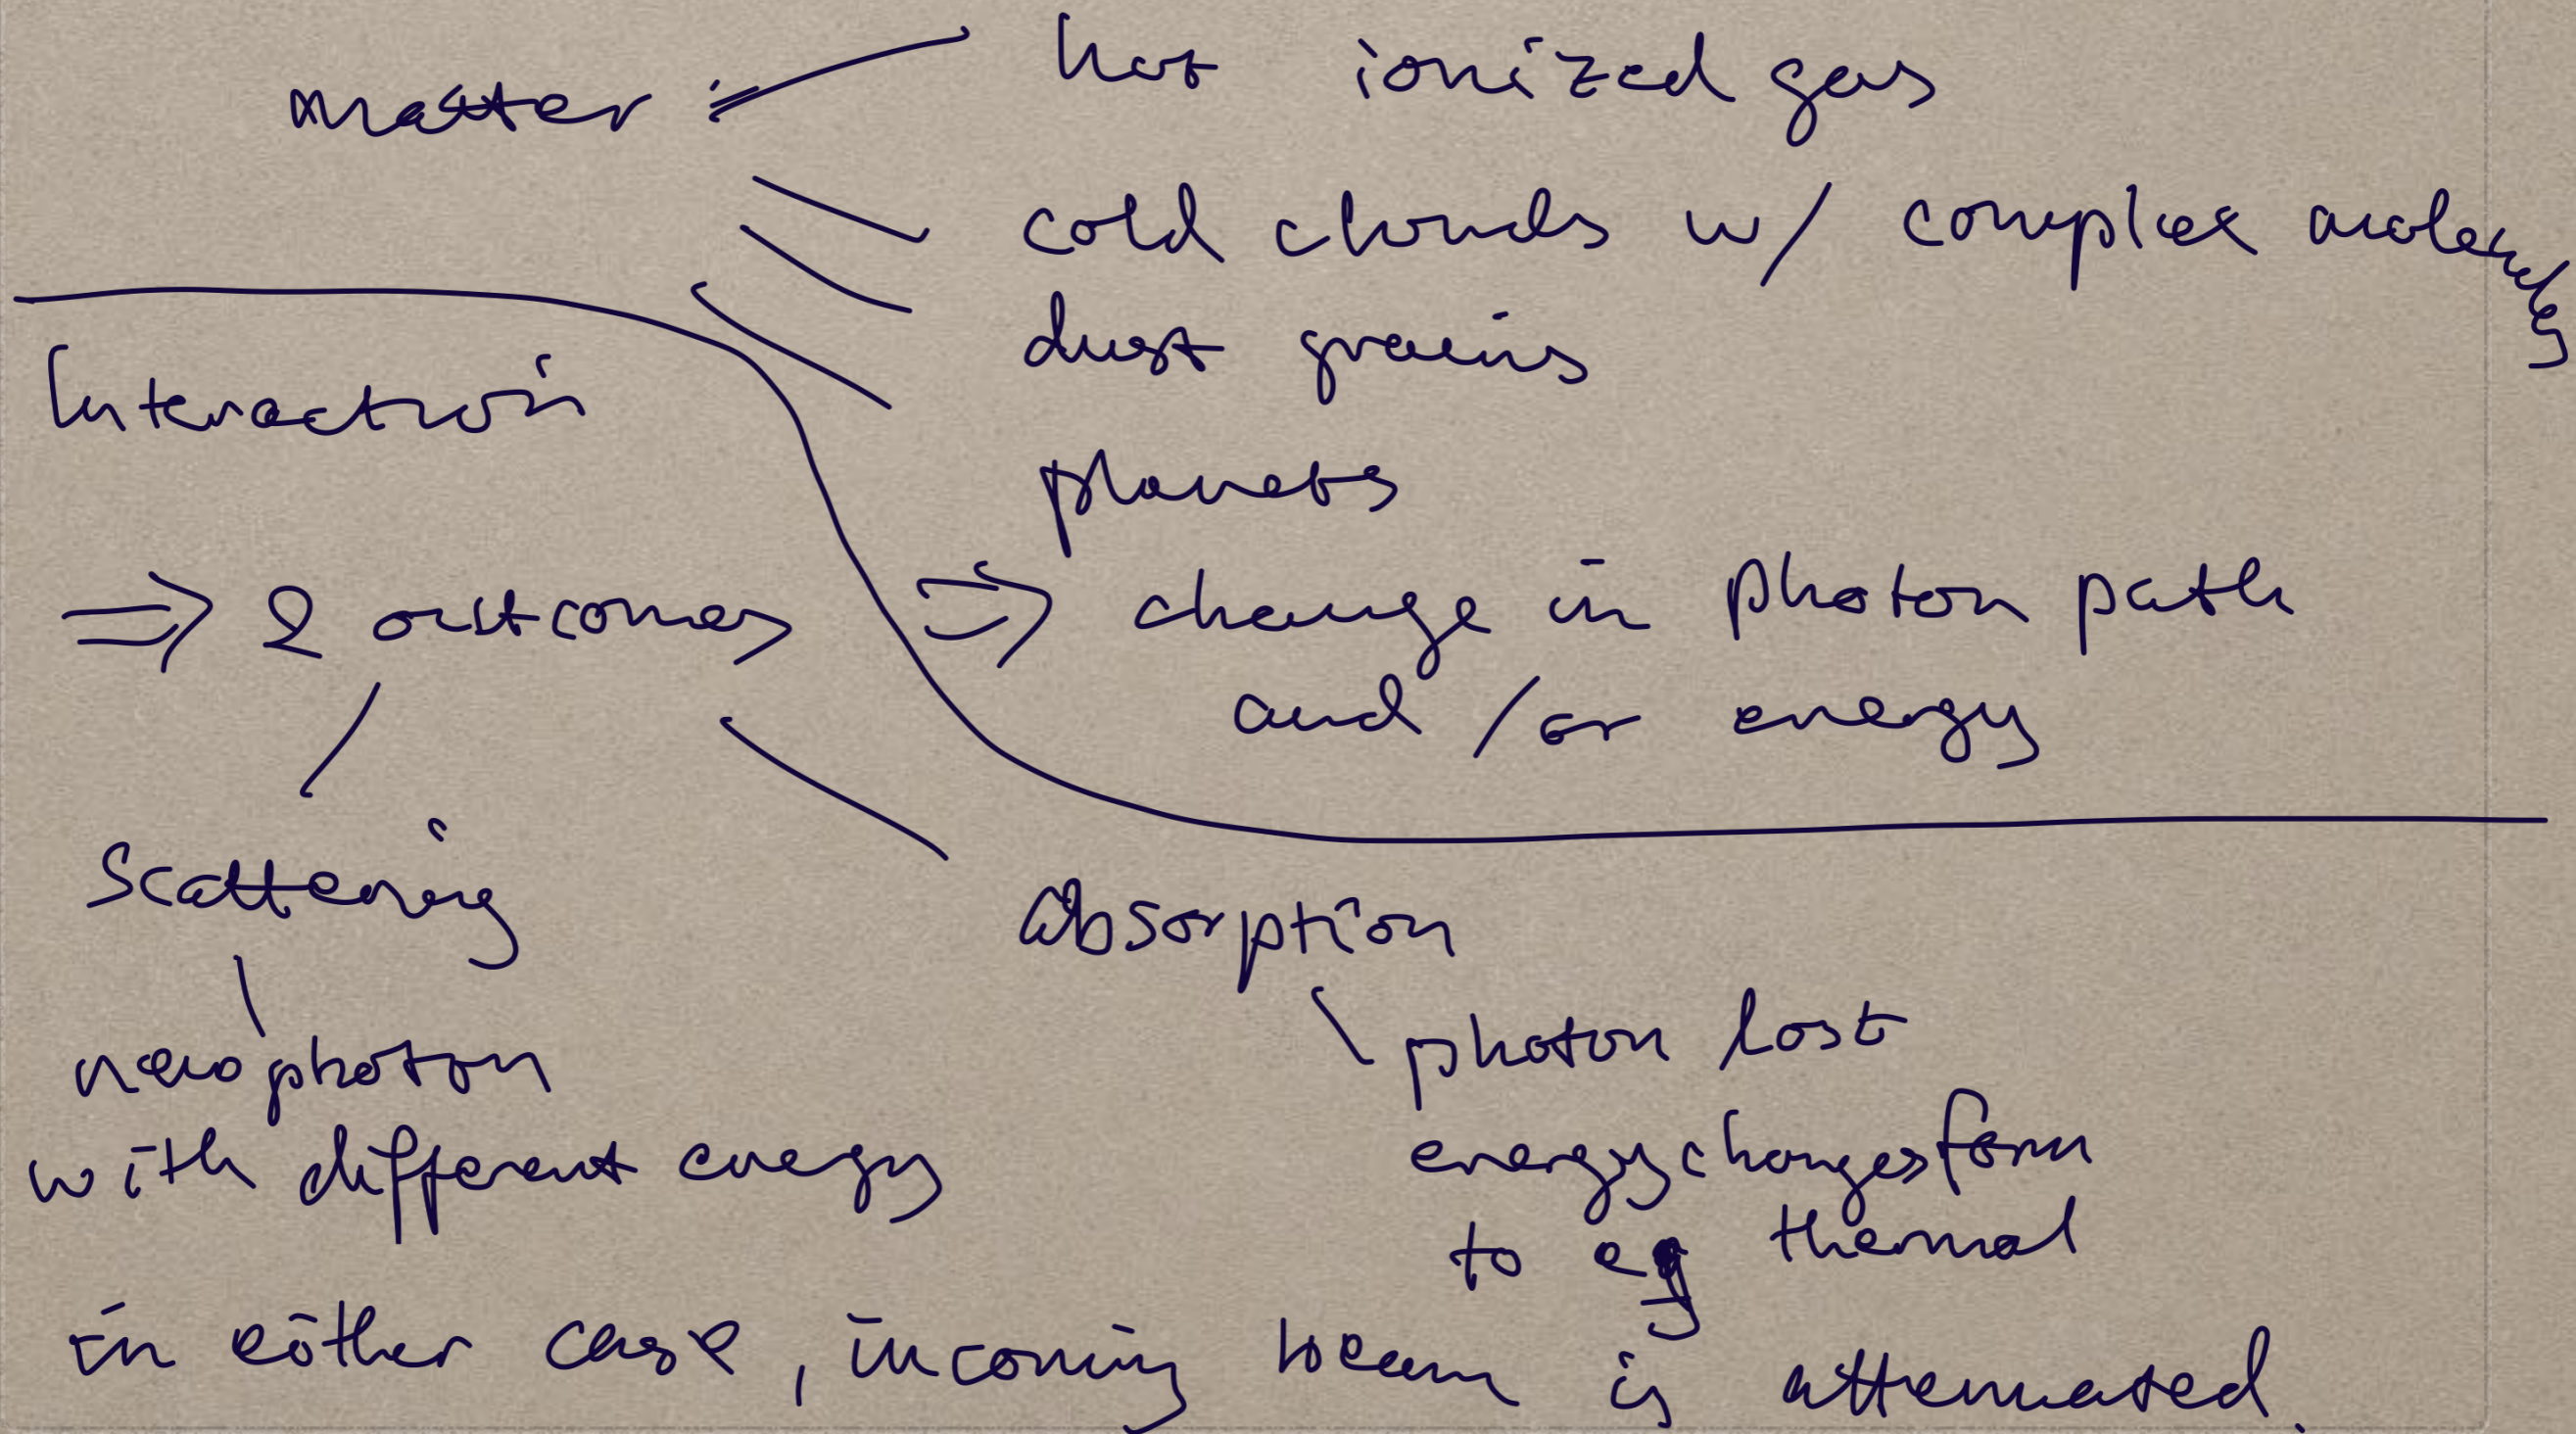 matter : hot ionized gas
cold clouds w/ complex molecules
dust grains
planets
⇒ change in photon path
and / or energy
Interaction
⇒ 2 outcomes
Scattering
new photon
with different energy
absorption
photon lost
energy changes form
to eg thermal
in either case, incoming beam is attenuated.